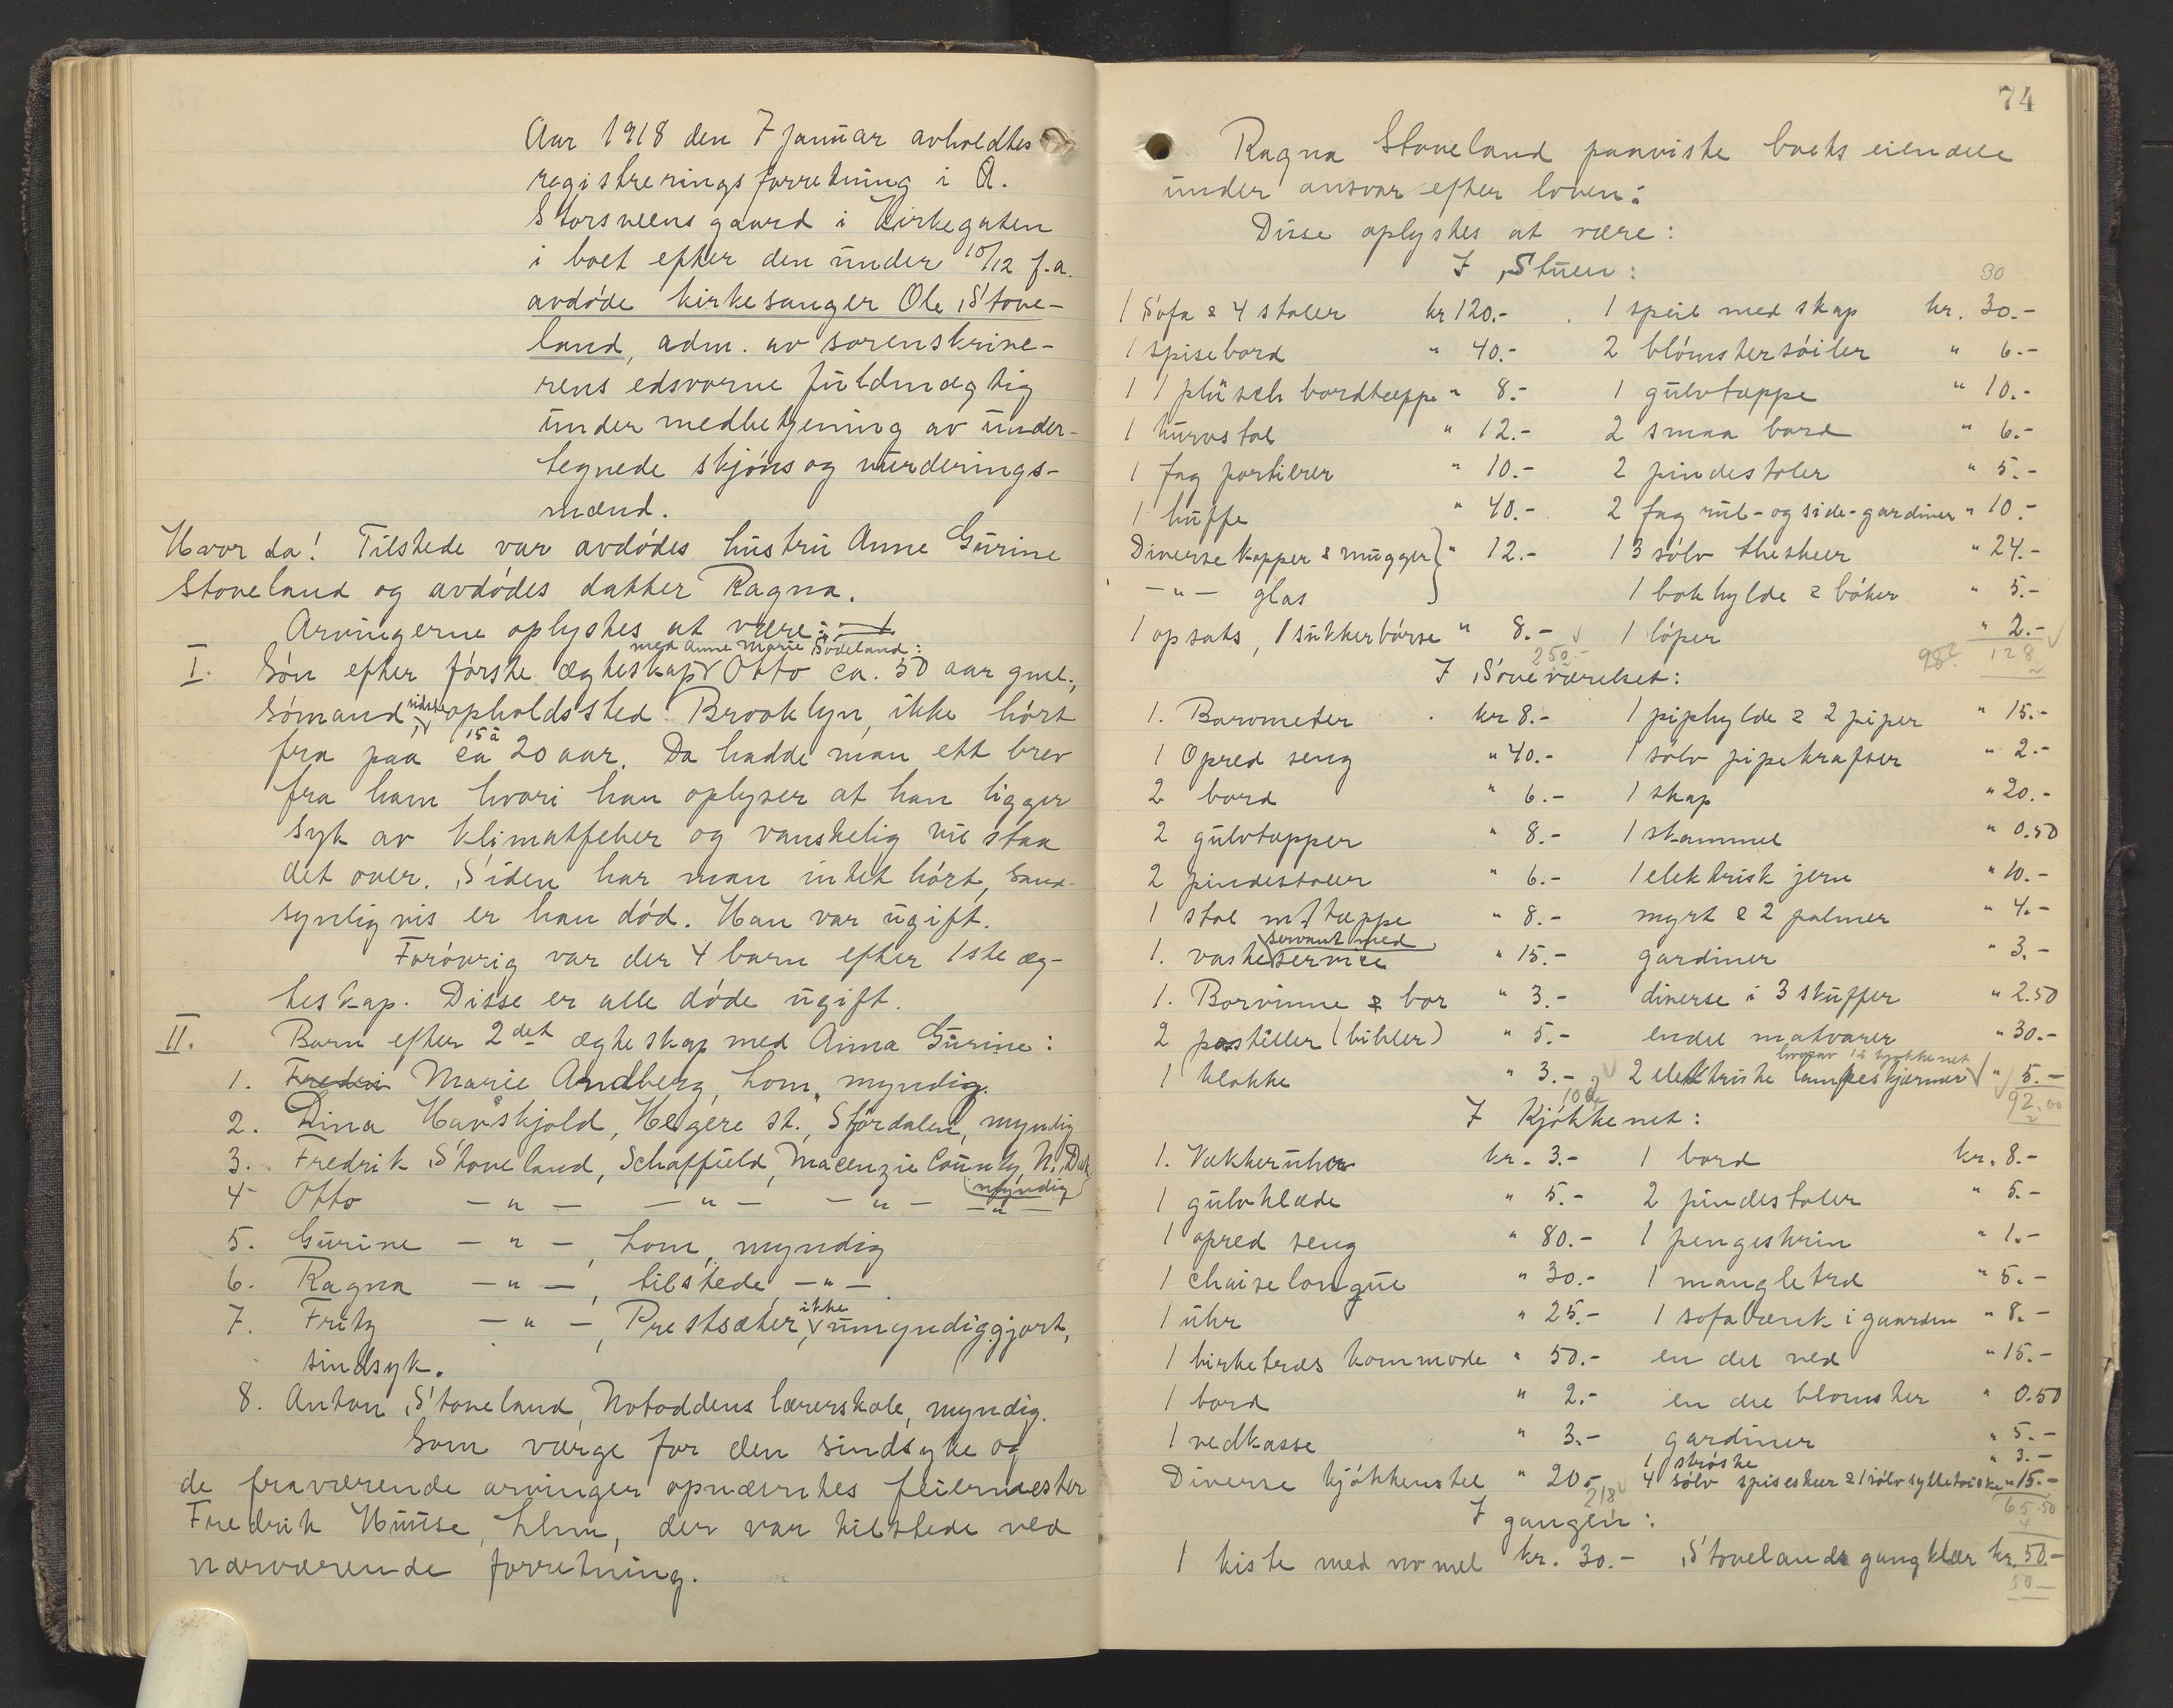 Aar 1918 den 7 januar avholdtes
registreringsforretning i A.
Storsveens gaard i Kirkegaten
i boet efter den under 10/12 f.a.
avdøde kirkesanger Ole Stove-
land, adm. av sorenskrive-
rens edsvorne fuldmægtig
under medbetjening av under-
tegnede skjøns og vurderings-
mænd.
Hvor da! Tilstede var avdødes hustru Anne Gurine
Stoveland og avdødes datter Ragna.
Arvingerne oplystes at være:
med Anne Marie Sødeland:
I. Søn efter første ægteskap Otto ca. 50 aar gml.,
sømand, sidste opholdssted Brooklyn, ikke hørt
fra paa ca 15 à 20 aar. Da hadde man ett brev
fra ham hvori han oplyser at han ligger
syk av klimatfeber og vanskelig vil staa
det over. Siden har man intet hørt, sand-
synligvis er han død. Han var ugift.
Forøvrig var der 4 barn efter 1ste æg-
teskap. Disse er alle døde ugift.
II. Barn efter 2det ægteskap med Anna Gurine:
1. Fredri Marie Andberg, Lom, myndig.
2. Dina Havskjold, Hegre st., Stjørdalen, myndig
3. Fredrik Stoveland, Schaffield, Macenzie County, N. Dak.
(myndig)
4 Otto -"- -"- -"- -"-
5. Gurine -"-, Lom, myndig
6. Ragna -"-, tilstede -"-.
7. Fritz -"-, Prestsæter, ikke umyndiggjort,
sindsyk.
8. Anton Stoveland, Notoddens lærerskole, myndig.
Som værge for den sindsyke og
de fraværende arvinger opnævntes feiermester
Fredrik Huuse, Lhm, der var tilstede ved
nærværende forretning.
74
Ragna Stoveland paaviste boets eiendele
under ansvar efter loven:
Disse oplystes at være:
I Stuen: 30
1 Sofa & 4 stoler kr 120.- 1 speil med skap kr. 30.-
1 spisebord " 40.- 2 blomstersøiler " 6.-
1 1 plüsch bordtæppe " 8.- 1 gulvtæppe " 10.-
1 kurvstol " 12.- 2 smaa bord " 6.-
1 fag portierer " 10.- 2 pindestoler " 5.-
1 buffe " 40.- 2 fag rul- og side-gardiner " 10.-
Diverse kopper & mugger } " 12.- 13 sølv theskeer " 24.-
-"- glas 1 bokhylde & bøker " 5.-
1 opsats, 1 sukkerbørse " 8.- 1 løper " 2.-
250.- 98 128
I Soveværelset:
1. Barometer kr 8.- 1 piphylde & 2 piper " 15.-
1 Opred seng " 40.- 1 sølv pipekrafser " 2.-
2 bord " 6.- 1 skap " 20.-
2 gulvtæpper " 8.- 1 skammel " 0.50
2 pindestoler " 6.- 1 elektrisk jern " 10.-
1 stol m/tæppe " 8.- myrt & 2 palmer " 4.-
servant med
1. vaskeservice " 15.- gardiner " 3.-
1. Borvinne & bor " 3.- diverse i 3 skuffer " 2.50
2 postiller (bibler) " 5.- endel matvarer " 30.-
hvorav 1 i kjøkkenet
1 klokke " 3.- 2 elektriske lampeskjærmer " 5.-
102 92.00
I Kjøkkenet:
1. Vækkeruhr kr. 3.- 1 bord kr. 8.-
1 gulvklæde " 5.- 2 pindestoler " 5.-
1 opred seng " 80.- 1 pengeskrin " 1.-
1 chaiselongue " 30.- 1 mangletræ " 5.-
1 uhr " 25.- 1 sofabænk i gaarden " 8.-
1 birketræs kommode " 50.- en del ved " 15.-
1 bord " 2.- en del blomster " 0.50
1 vedkasse " 3.- gardiner " 5.-
1 strøske " 3.-
Diverse kjøkkenstel " 20.- 4 sølv spiseskeer & 1 sølv sylteteiske " 15.-
218 65.50
I gangen:
1 kiste med no mel kr. 30.- Stovelands gangklær kr. 50.-
50.-